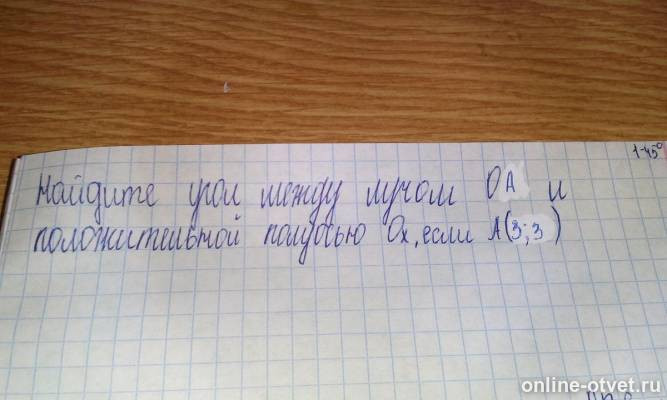 1-45°
Найдите угол между лучом OA и
положительной полуосью Ox, если A(3;3)
online-otvet.ru